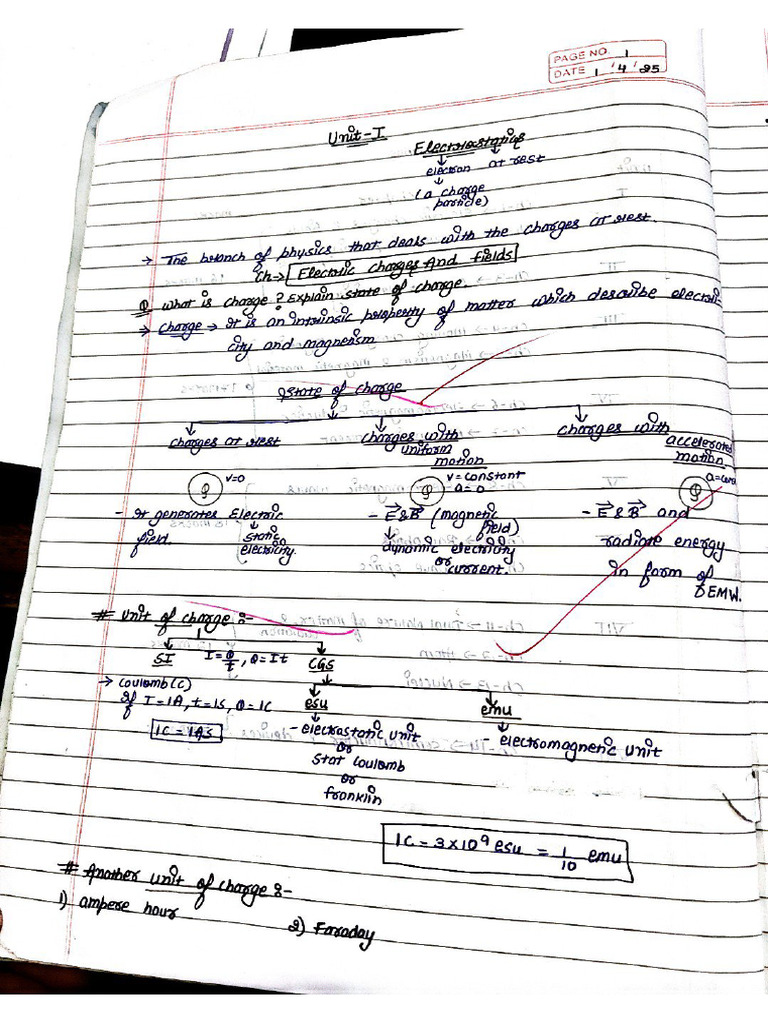 PAGE NO. 1
DATE 1/4/25
Unit-I
Electrostatics
↓ ↓
electron at rest
↓
(a charge particle)
→ The branch of physics that deals with the charges at rest.
Ch→ Electric charges And fields
Q What is charge? Explain state of charge.
→ charge → It is an intrinsic property of matter which describe electri-
city and magnetism
State of charge
charges at rest
charges with uniform motion
charges with accelerated motion
Q v=0
Q v=constant
a=0
Q
- It generates Electric field.
↓
static electricity.
- E⃗ & B⃗ (magnetic field)
↓
dynamic electricity
or
current.
- E⃗ & B⃗ and
radiate energy
in form of
EMW.
# Unit of charge :-
SI I=Q/t, Q=It CGS
→ Coulomb(C)
if I=1A, t=1s, Q=1C
1C=1AS
esu emu
- electrostatic unit
or
Stat Coulomb
or
franklin
- electromagnetic unit
1C = 3×10⁹ esu = 1/10 emu
# Another unit of charge :-
1) ampere hour
2) Faraday